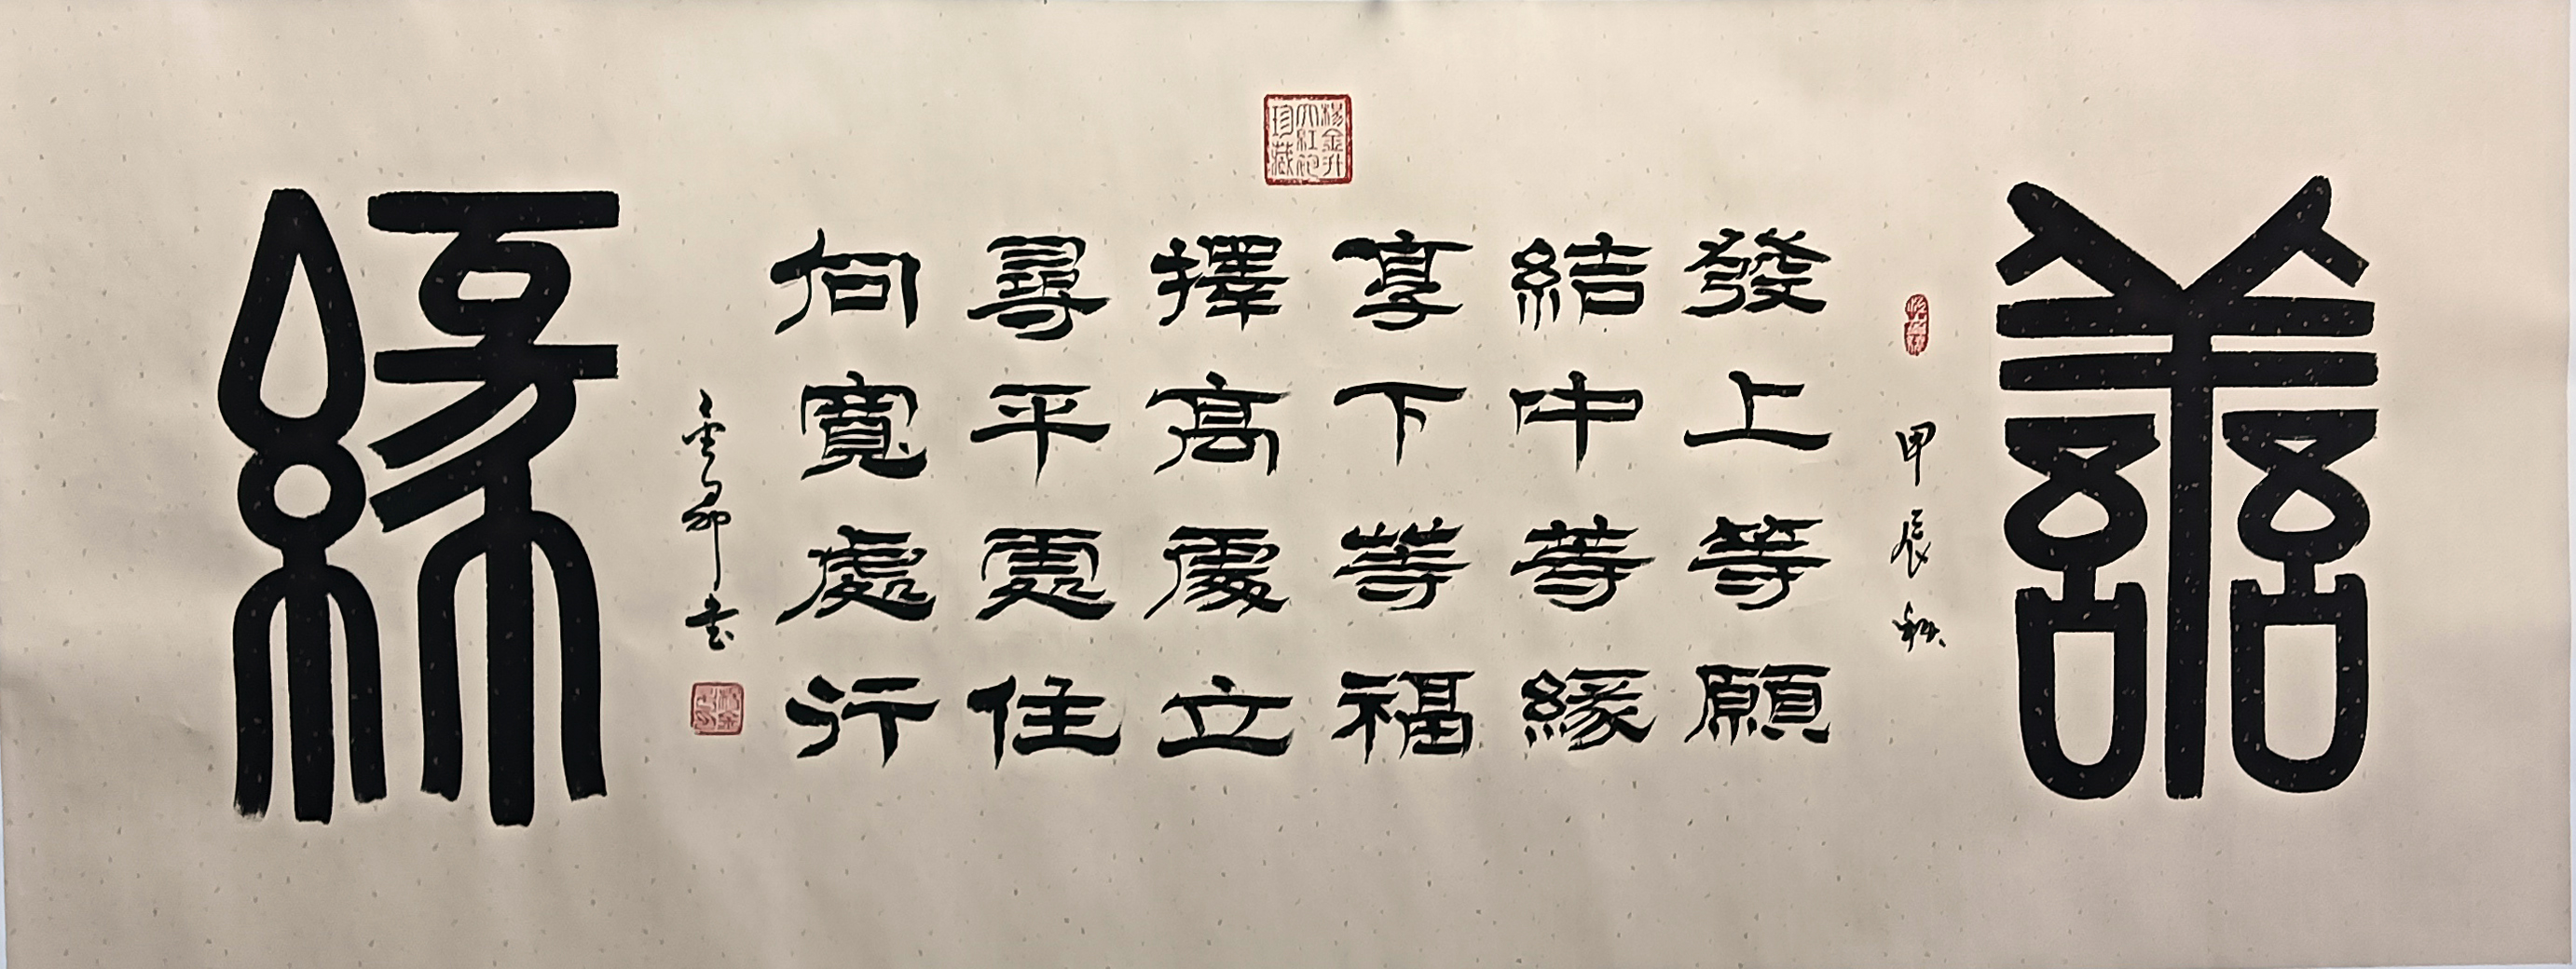 善
甲辰秋
發上等願
結中等緣
享下等福
擇高處立
尋平處住
向寬處行
書
緣
楊金升
大紅袍
珍藏